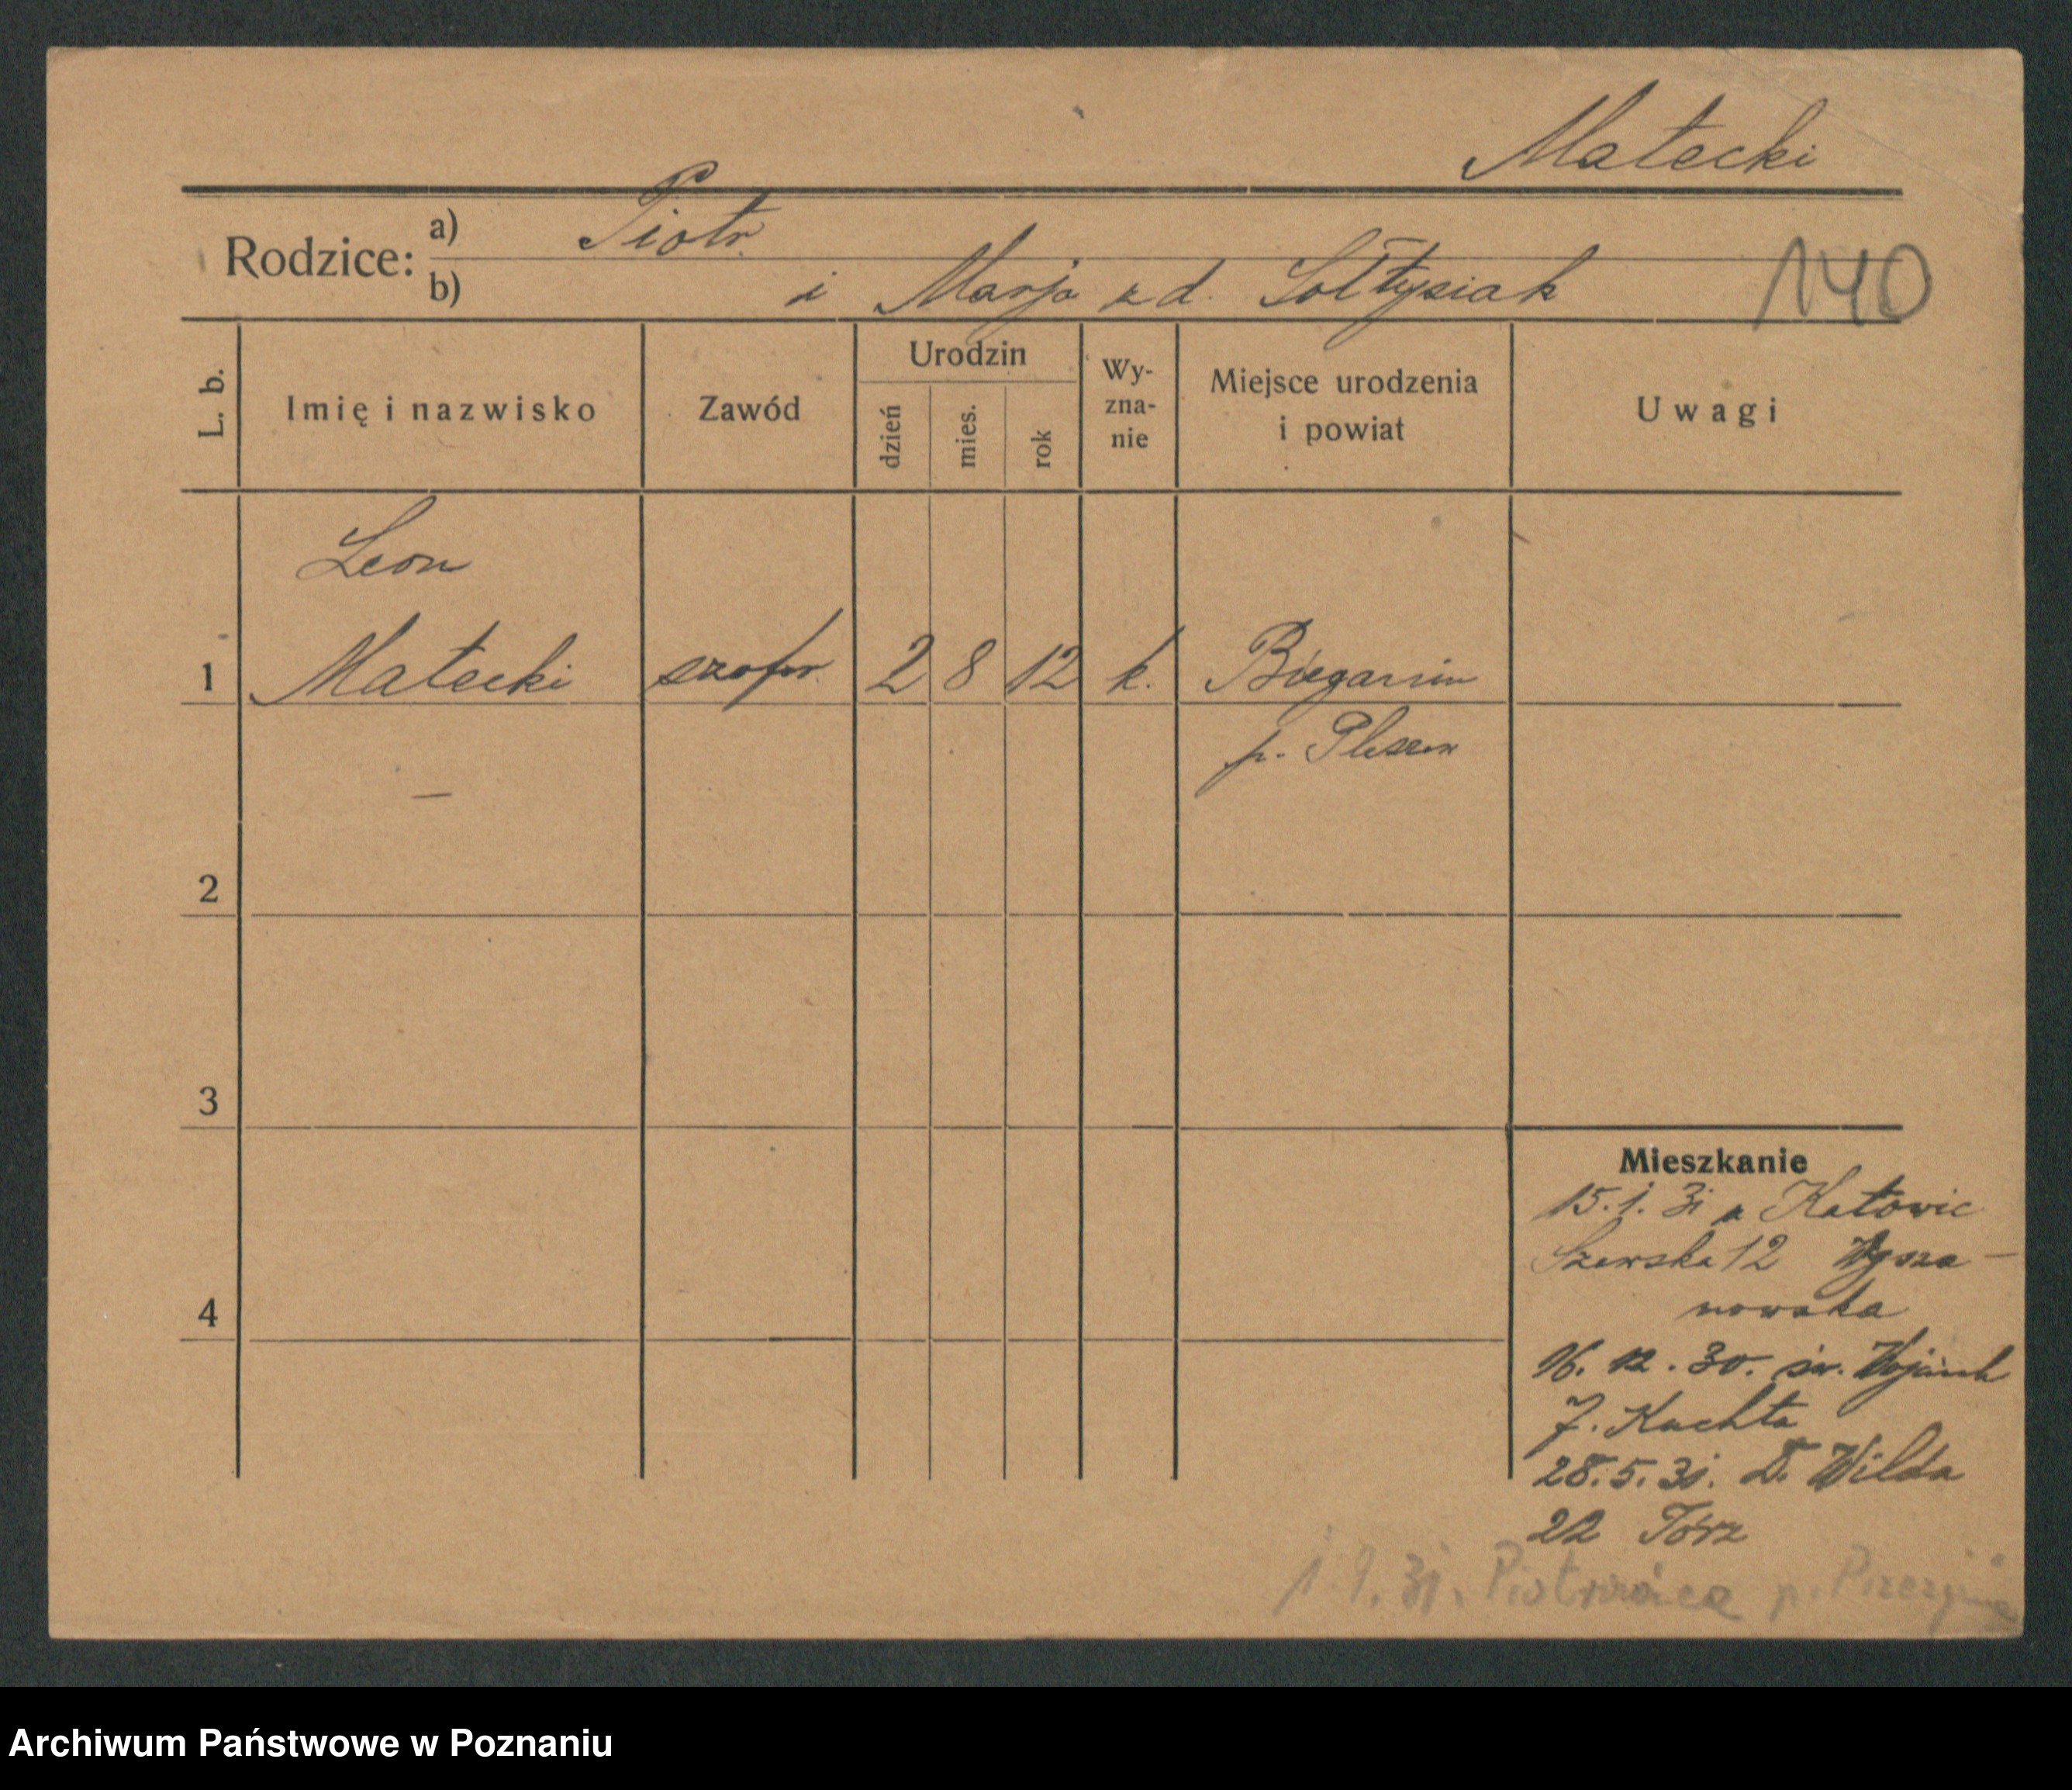 Małecki
Rodzice:
a) Piotr.
b) i Marja z d. Sołtysiak
140
L. b.
Imię i nazwisko
Zawód
Urodzin
dzień
mies.
rok
Wy-
zna-
nie
Miejsce urodzenia
i powiat
Uwagi
Leon
1 Małecki szofer. 2 8 12 k. Bieganin
p. Pleszew
2
3
4
Mieszkanie
15.1.31 z Katowic
Szewska 12
nowska
16. 12. 30. św. Wojciech
7. Kuchta
28.5.31. D. Wilda
22 Tórz
1.9.31. p.
Archiwum Państwowe w Poznaniu